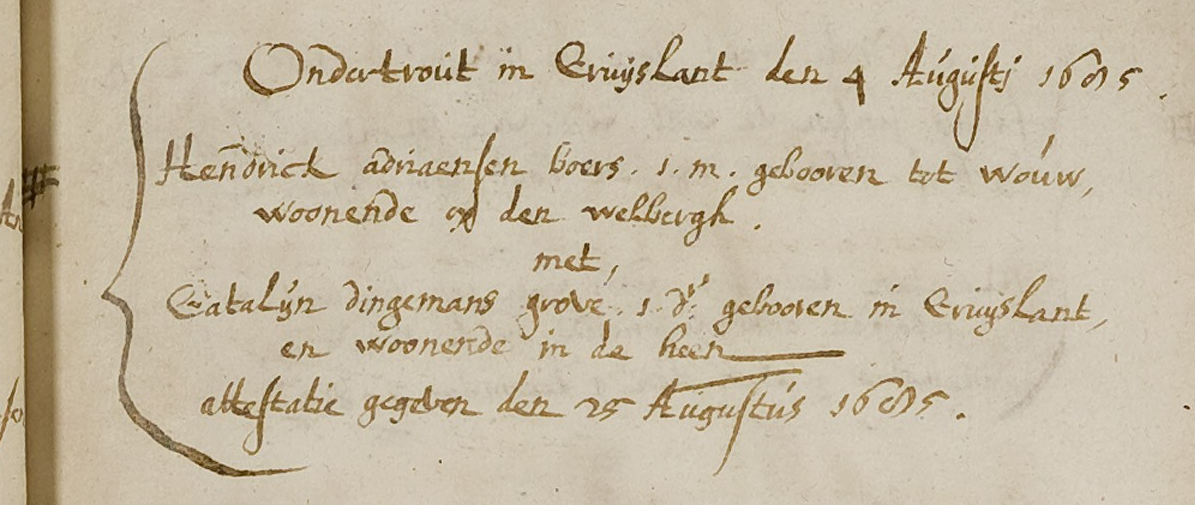 Ondertrout in Cruijslant den 4 Augustj 1685.
Hendrick adriaensen boers. j. m. gebooren tot wouw,
woonende op den welbergh.
met,
Catalijn dingemans grove. j. dr. gebooren in Cruijslant,
en woonende in de heen
attestatie gegeven den 25 Augustus 1685.